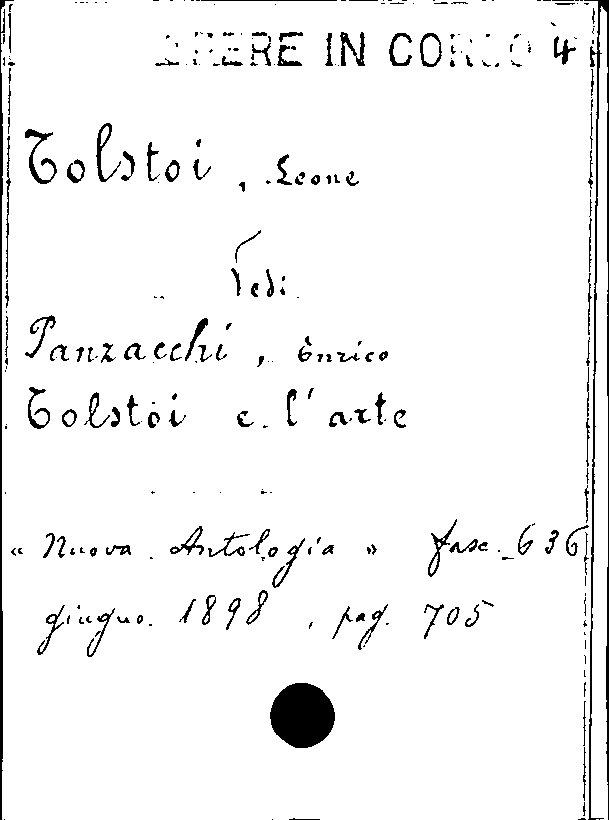 OPERE IN CORSO 4
Tolstoi, Leone
Vedi
Panzacchi, Enrico
Tolstoi e l'arte
« Nuova Antologia » fasc. 636
giugno 1898, pag. 705